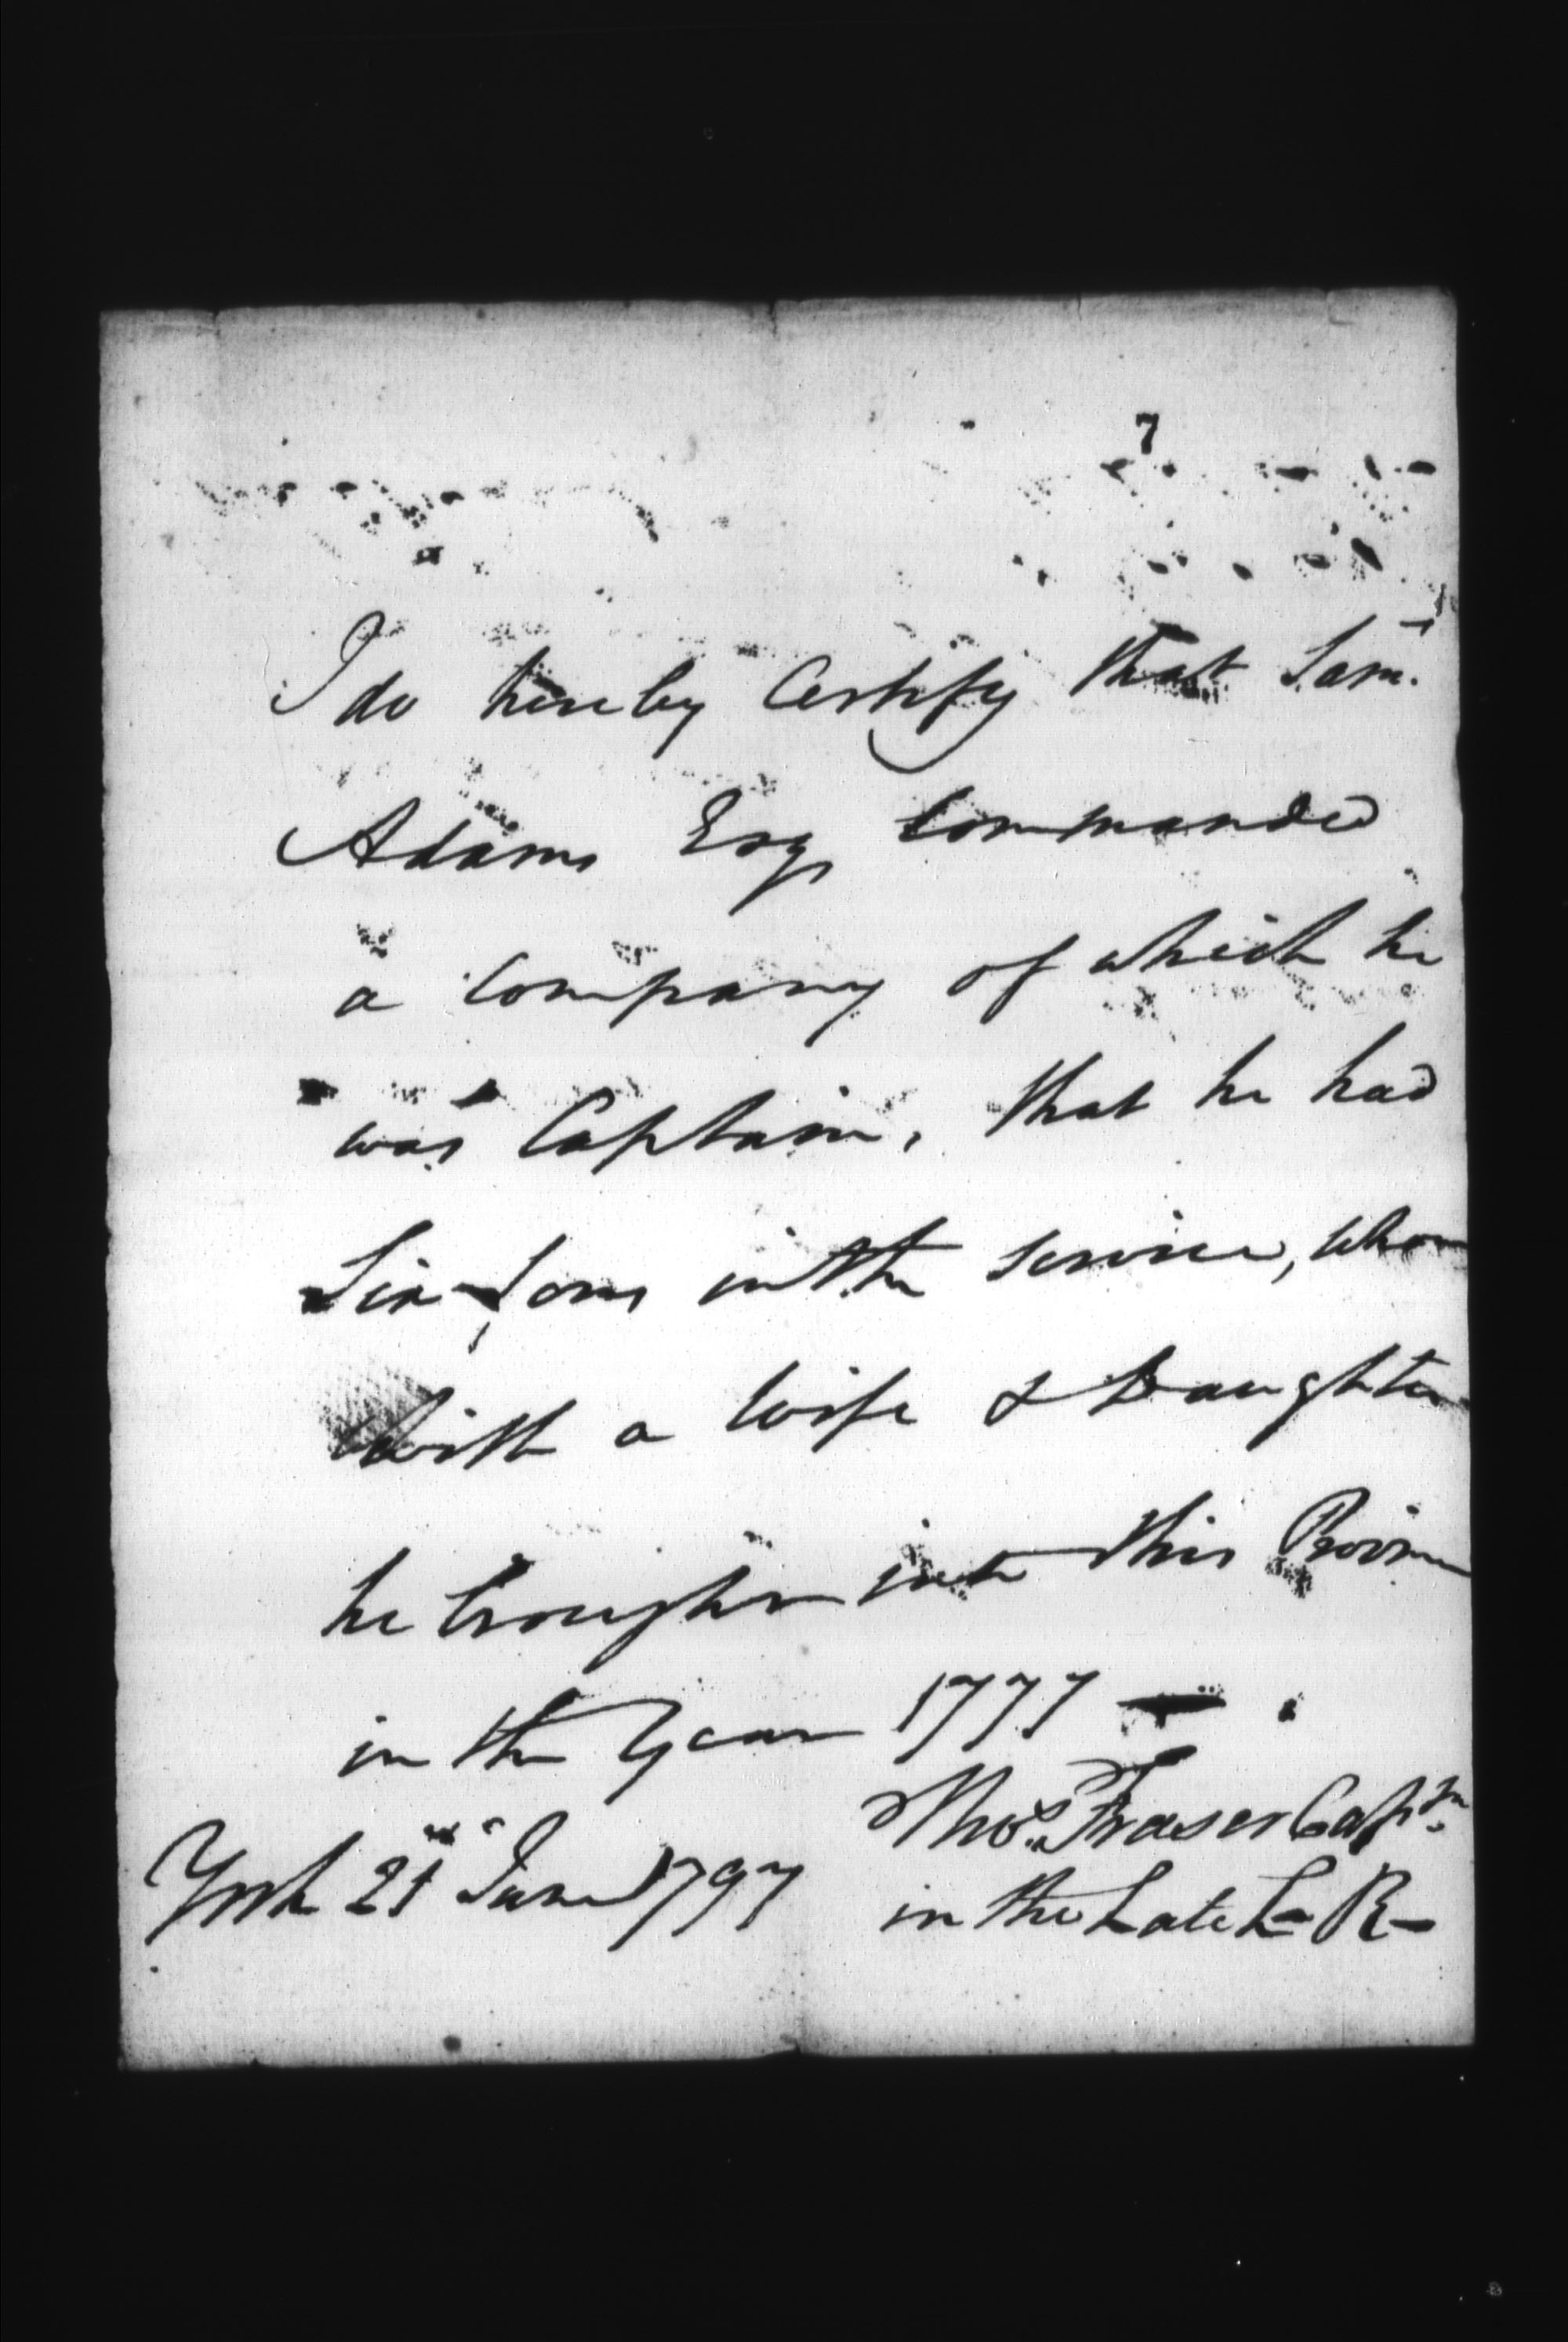 7
I do hereby Certify that Saml.
Adams Esqr Commanded
a Company of which he
was Captain, that he had
Six Sons in the service, whom
With a Wife & Daughter
he brought into this Province
in the Year 1777 —
Thos. Fraser Captn.
York 21st June 1797 in the Late L— R—